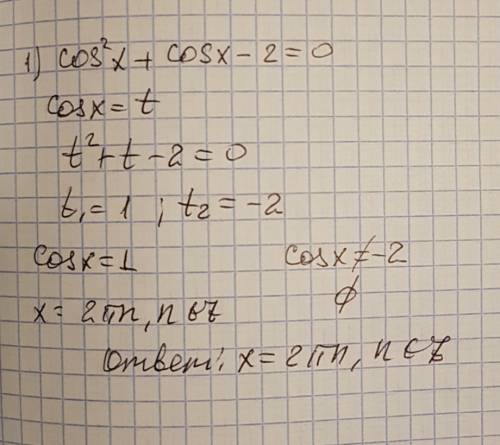 1) cos²x + cosx - 2 = 0
cosx = t
t² + t - 2 = 0
t₁ = 1 ; t₂ = -2
cosx = 1 cosx ≠ -2
x = 2πn, n ∈ Z ∅
Ответ: x = 2πn, n ∈ Z